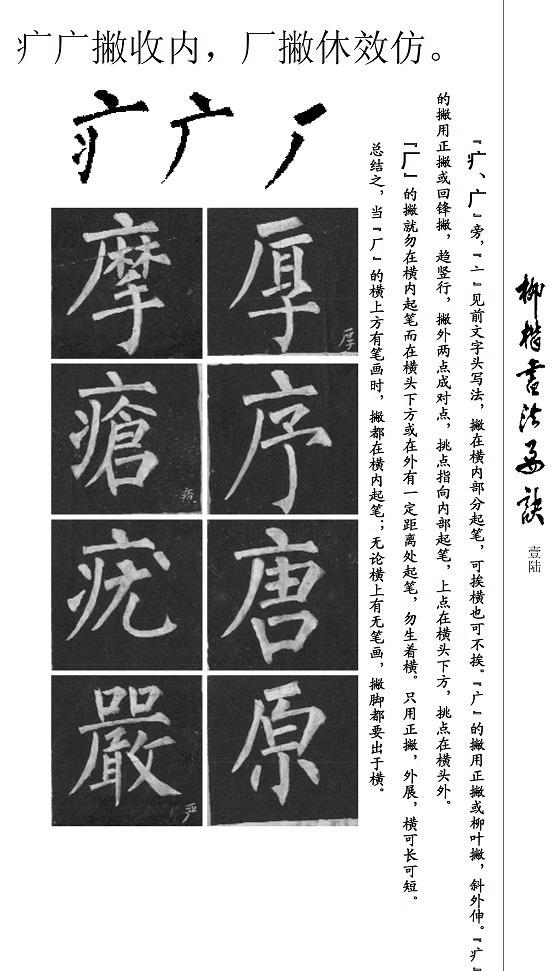 疒广撇收内，厂撇休效仿。
疒 广 厂
『疒、广』旁，『亠』见前文字头写法，撇在横内部分起笔，可挨横也可不挨。『广』的撇用正撇或柳叶撇，斜外伸。『疒』
的撇用正撇或回锋撇，趋竖行，撇外两点成对点，挑点指向内部起笔，上点在横头下方，挑点在横头外。
『厂』的撇就勿在横内起笔而在横头下方或在外有一定距离处起笔，勿生着横。只用正撇，外展，横可长可短。
总结之，当『厂』的横上方有笔画时，撇都在横内起笔；无论横上有无笔画，撇脚都要出于横。
厚
厚
序
唐
原
摩
瘡
疣
嚴
严
柳楷書法要訣
壹陆